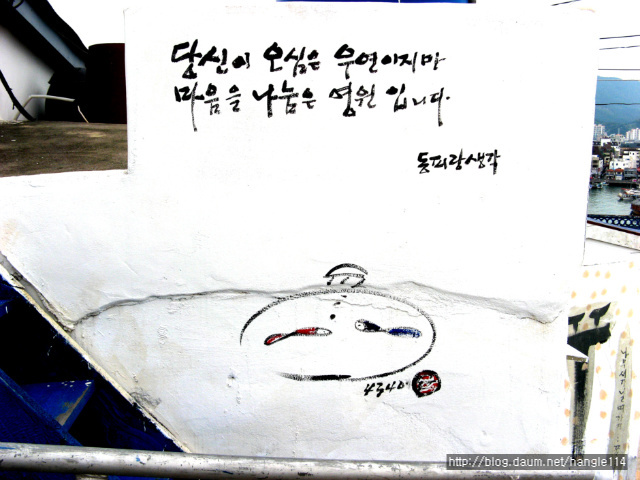 당신이 오심은 우연이지마
마음을 나눔은 영원 입니다.
동피랑생각
http://blog.daum.net/hangle114